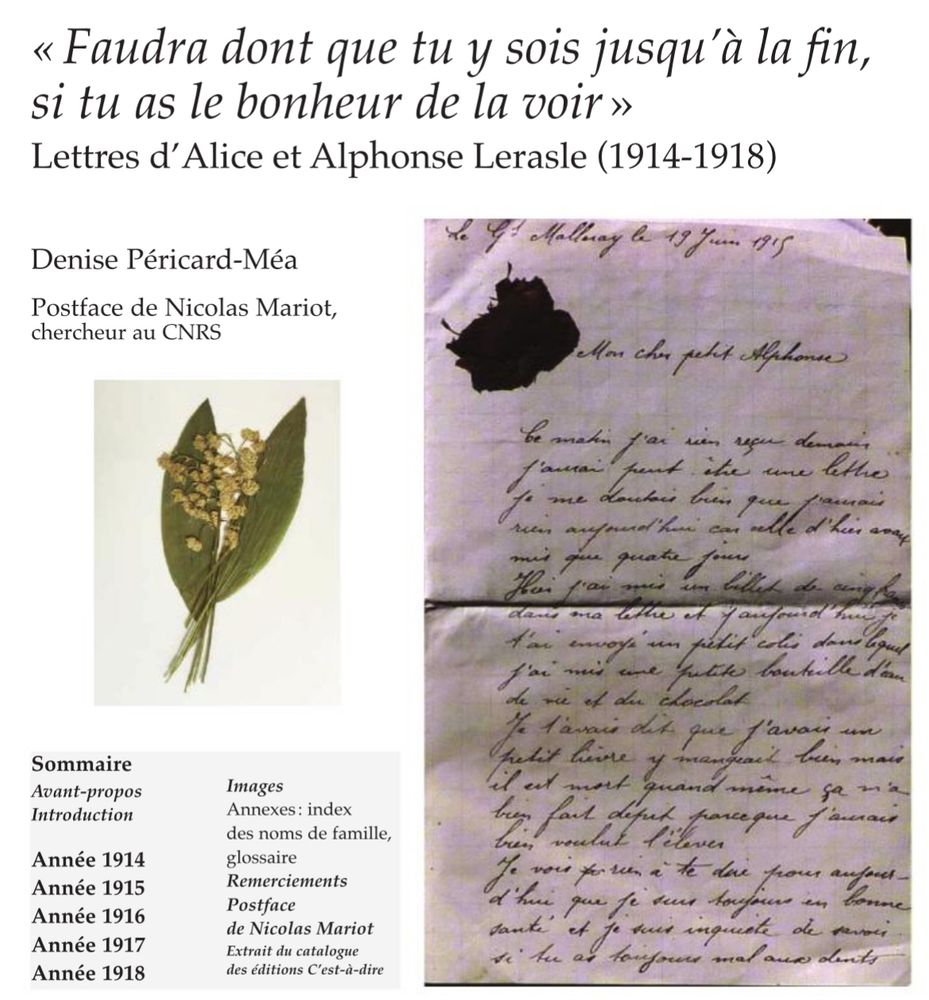 « Faudra dont que tu y sois jusqu’à la fin,
si tu as le bonheur de la voir »
Lettres d’Alice et Alphonse Lerasle (1914-1918)
Denise Péricard-Méa
Postface de Nicolas Mariot,
chercheur au CNRS
Sommaire
Avant-propos
Introduction
Année 1914
Année 1915
Année 1916
Année 1917
Année 1918
Images
Annexes : index
des noms de famille,
glossaire
Remerciements
Postface
de Nicolas Mariot
Extrait du catalogue
des éditions C’est-à-dire
Le Gd Malleray le 19 Juin 1915
Mon cher petit Alphonse
Ce matin j'ai rien reçu demain
j'aurai peut être une lettre
je me doutais bien que j'aurais
rien aujourd'hui car celle d'hier avait
mis que quatre jours
Hier j'ai mis un billet de cinq
dans ma lettre et aujourd'hui je
t'ai envoyé un petit colis dans lequel
j'ai mis une petite bouteille d'eau
de vie et du chocolat
Je t'avais dit que j'avais un
petit lièvre y mangeait bien mais
il est mort quand même ça m'a
bien fait dépit parceque j'aurais
bien voulut l'élever
Je vois rien à te dire pour aujour-
d'hui que je suis toujours en bonne
santé et je suis inquiète de savoir
si tu as toujours mal aux dents